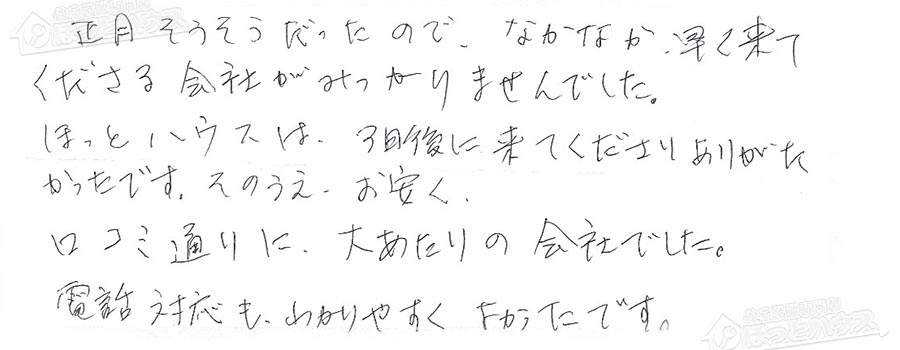 正月そうそうだったので、なかなか、早く来て
くださる会社がみつかりませんでした。
ほっとハウスは、3日後に来てくださりありがた
かったです。そのうえ、お安く、
口コミ通りに、大あたりの会社でした。
電話対応も、わかりやすくよかったです。
ほっとハウス
ほっとハウス